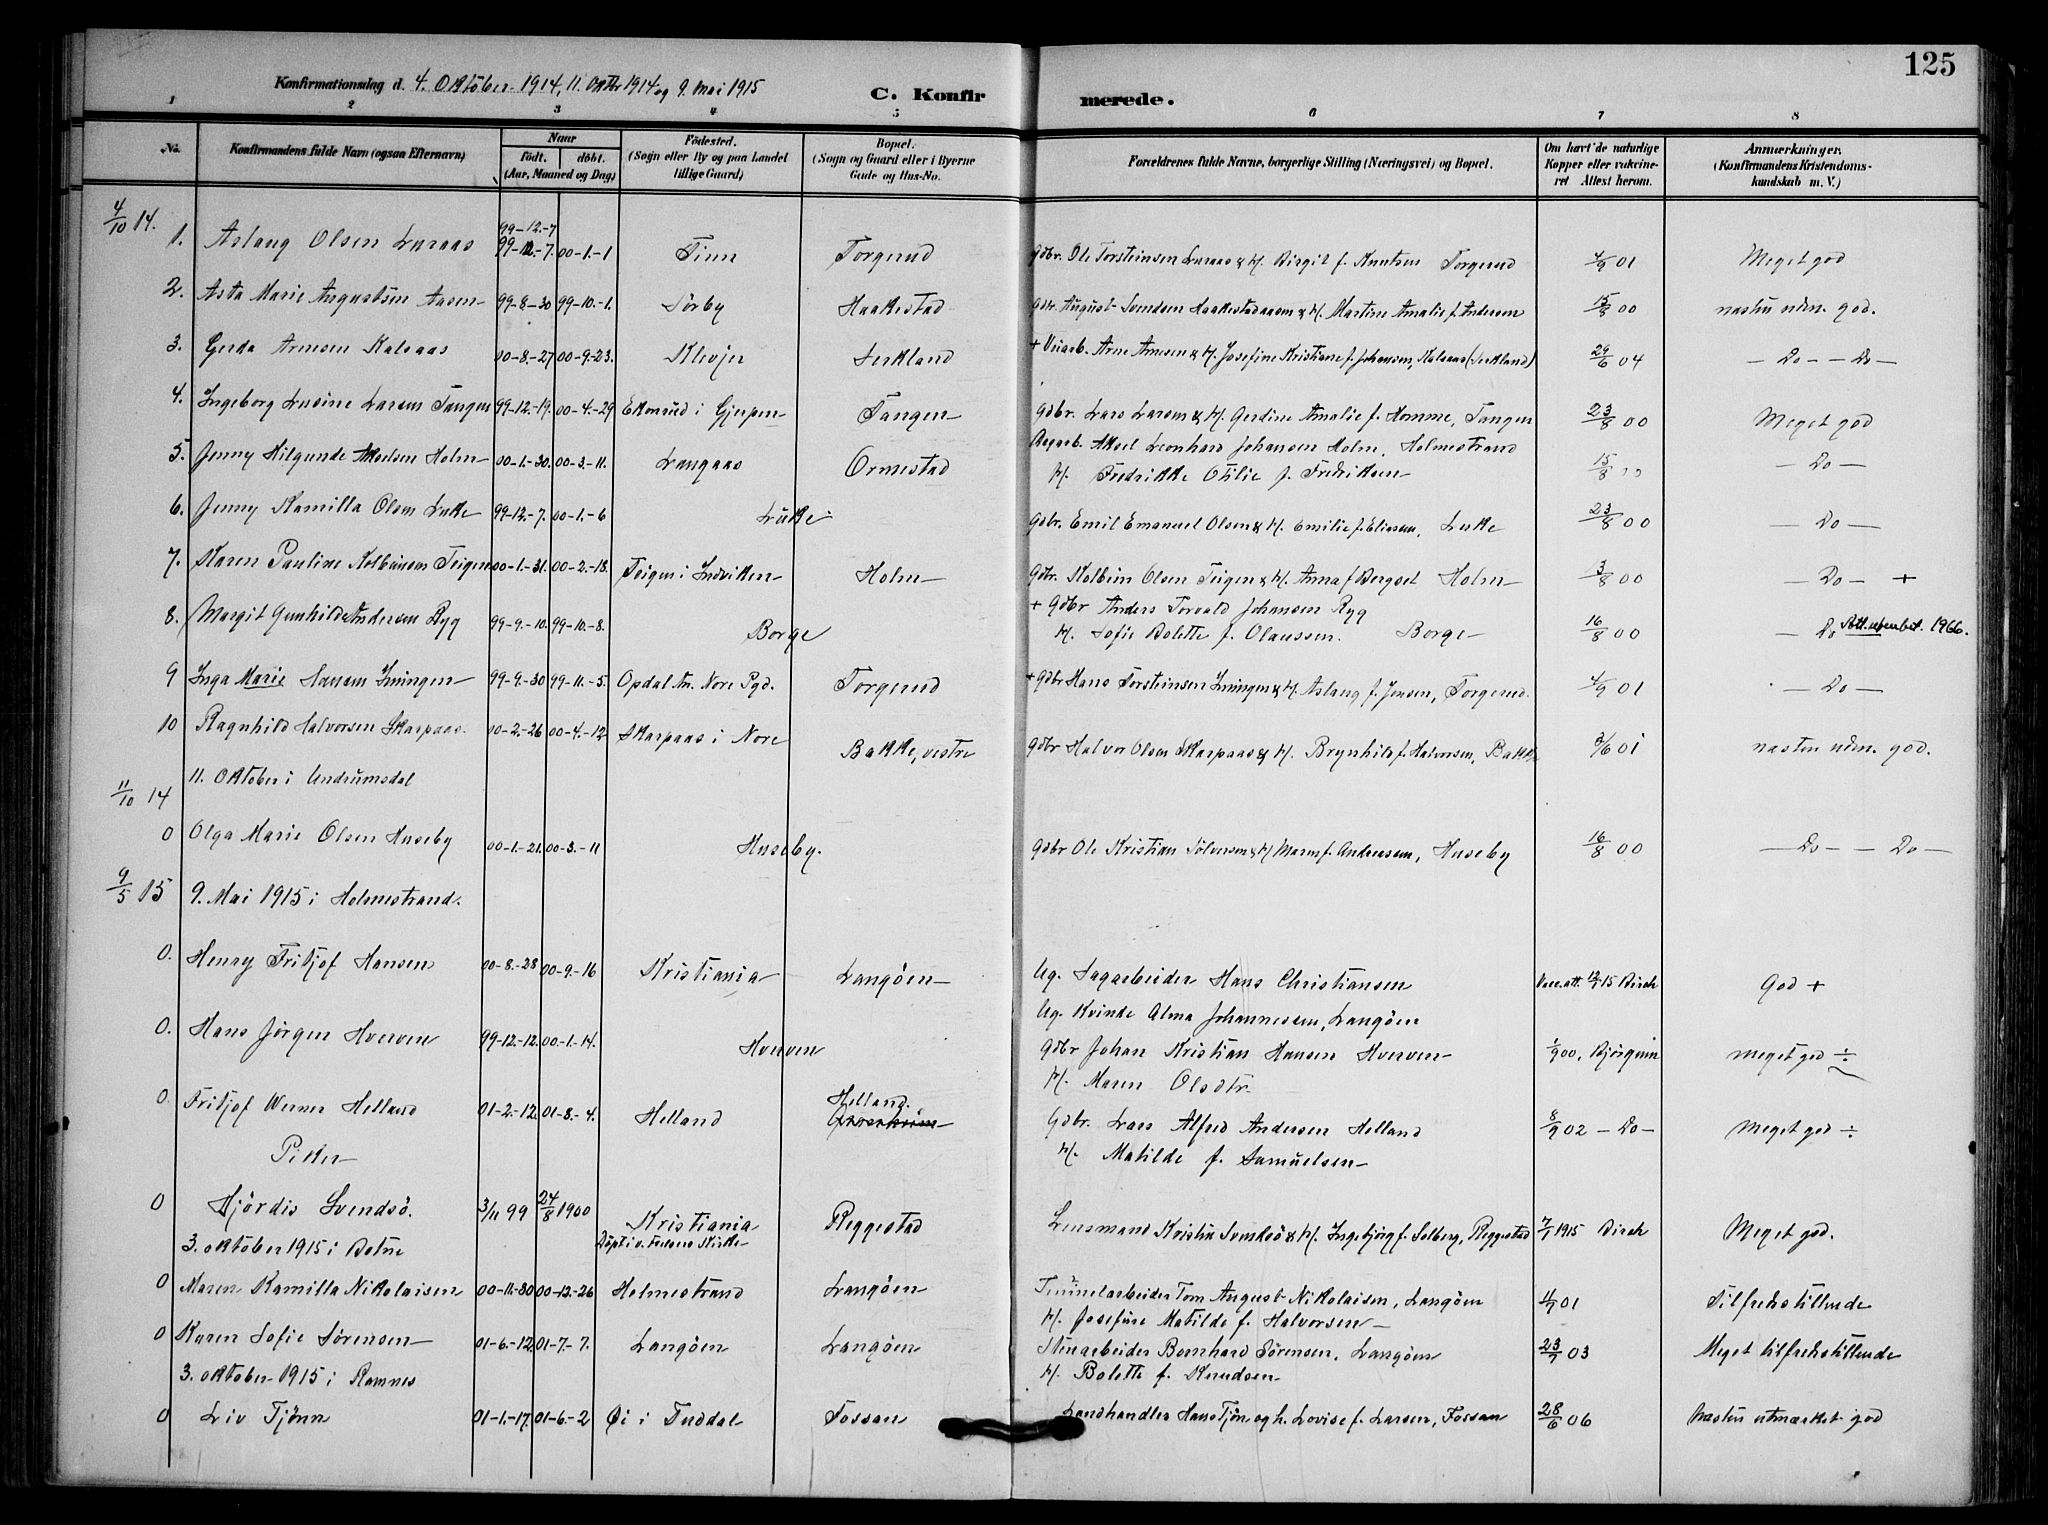 125
Konfirmationsdag d. 4. Oktober 1914, 11. Oktbr 1914 og 9. Mai 1915 C. Konfirmerede.
1 2 3 4 5 6 7 8
No. Konfirmandens fulde Navn (ogsaa Efternavn) Naar födt. döbt. (Aar, Maaned og Dag) Födested. (Sogn eller By og paa Landet tillige Gaard) Bopæl. (Sogn og Gaard eller i Byerne Gade og Hus-No. Forældrenes fulde Navne, borgerlige Stilling (Næringsvei) og Bopæl. Om havt de naturlige Kopper eller vakcineret Attest herom. Anmærkninger. (Konfirmandens Kristendomskundskab m. V.)
4/10 14.
99-12-7
1. Aslaug Olsen Luraas 99-12.-7. 00-1.-1 Tinn Torgerud Gdbr. Ole Torsteinsen Luraas & H. Birgit f. Knutsen Torgerud 4/9 01 Meget god
2. Asta Marie Augustsen Aasen 99-8-30 99-10.-1. Sörby Haakestad Gdbr. August Svendsen Haakestadaasen & H. Martine Amalie f. Andersen 15/8 00 næsten udm. god.
3. Gerda Arnesen Kalsaas 00-8.-27 00-9-23. Klevjer Serkland + Veiarb. Arne Arnesen & H. Josefine Kristiane f. Johansen, Kalsaas (Serkland) 29/6 04 - Do - - Do -
4. Ingeborg Lusine Larsen Tangen 99-12.-19. 00-4.-29 Ekornrud i Gjerpen Tangen Gdbr. Lars Larsen & H. Gerdine Amalie f. Homme, Tangen 23/8 00 Meget god
5. Jenny Hilgunde Akselsen Holm 00-1.-30. 00-3.-11. Langaas Ormestad Bygarb. Aksel Leonhard Johansen Holm, Holmestrand
H. Fredrikke Otilie f. Fredriksen 15/8 ,, - Do -
6. Jenny Kamilla Olsen Lukke 99-12.-7. 00-1.-6 Lukke Gdbr. Emil Emanuel Olsen & H. Emilie f. Eliassen, Lukke 23/8 00 - Do -
7. Karen Pauline Kolbeinsen Teigen 00-1.-31. 00-2.-18. Teigen i Indviken Holm Gdbr. Kolbein Olsen Teigen & H. Anna f. Berqset Holm 13/8 00 - Do - +
8. Margit Gunhilde Andersen Ryg 99-9.-10. 99-10.-8. Borge + Gdbr Anders Torvald Johansen Ryg
H. Sofie Bolette f. Olaussen. Borge 16/8 00 - Do Att. utenbet. 1966.
9 Inga Marie Hansen Imingen 99-9.-30 99-11.-5. Opdal An. Nore Pgd. Torgerud + Gdbr Hans Torsteinsen Imingen & H. Aslaug f. Jensen, Torgerud. 4/9 01 - Do -
10 Ragnhild Halvorsen Skarpaas. 00-2.-26 00-4.-12 Skarpaas i Nore Bakke, vestre Gdbr Halvor Olsen Skarpaas & H. Brynhild f. Halvorsen, Bakke 3/6 01 næsten udm. god.
11. Oktober i Undrumsdal
11/10 14
0 Olga Marie Olsen Huseby 00-1.-21. 00-3.-11 Huseby. Gdbr Ole Kristian Sölvesen & H Maren f. Andreassen, Huseby 16/8 00 - Do - - Do -
9/5 15 9. Mai 1915 i Holmestrand.
0. Henry Fritjof Hansen 00-8.-28 00-9.-16 Kristiania Langöen Ug. Sagarbeider Hans Christiansen
Ug. Kvinde Alma Johannessen, Langöen Vacc.att. 12/1 15 Birch God +
0. Hans Jörgen Hverven 99-12-12. 00-1.-14. Hverven Gdbr Johan Kristian Hansen Hverven
H. Maren Olsdtr. 1/9 00, Bjørquin meget god ÷
0. Fritjof Werner Helland 01-2.-12. 01-8.-4. Helland Helland. Gdbr. Lars Alfred Andersen Helland
H. Matilde f. Samuelsen 8/9 02 - Do - Meget god ÷
Piker
0 Hjördis Svendsö. 3/11 99 24/8 1900 Kristiania
Döpt i v. Frelsers Kirke Reggestad Lensmand Kristin Svendsö & H. Ingebjørg f. Solberg, Reggestad 7/1 1915 Birch Meget god.
3. oktober 1915 i Botne
0 Maren Kamilla Nikolaisen 00-11-30 00-12.-26 Holmestrand Langöen Tömmerarbeider Tom August Nikolaisen, Langöen
H. Josefine Matilde f. Halvorsen 4/9 01 Tilfredsstillende
0 Karen Sofie Sörensen 01-6.-12 01-7.-7. Langöen Langöen Stenarbeider Bernhard Sörensen, Langöen
H. Bolette f. Knudsen 23/7 03 Meget tilfredsstillende
3. oktober 1915 i Ramnes
0 Liv Tjönn 01-1.-17. 01-6.-2 Öi i Tuddal Fossan Landhandler Hans Tjön og h. Lovise f. Larsen, Fossan 28/6 06 næsten utmærket god